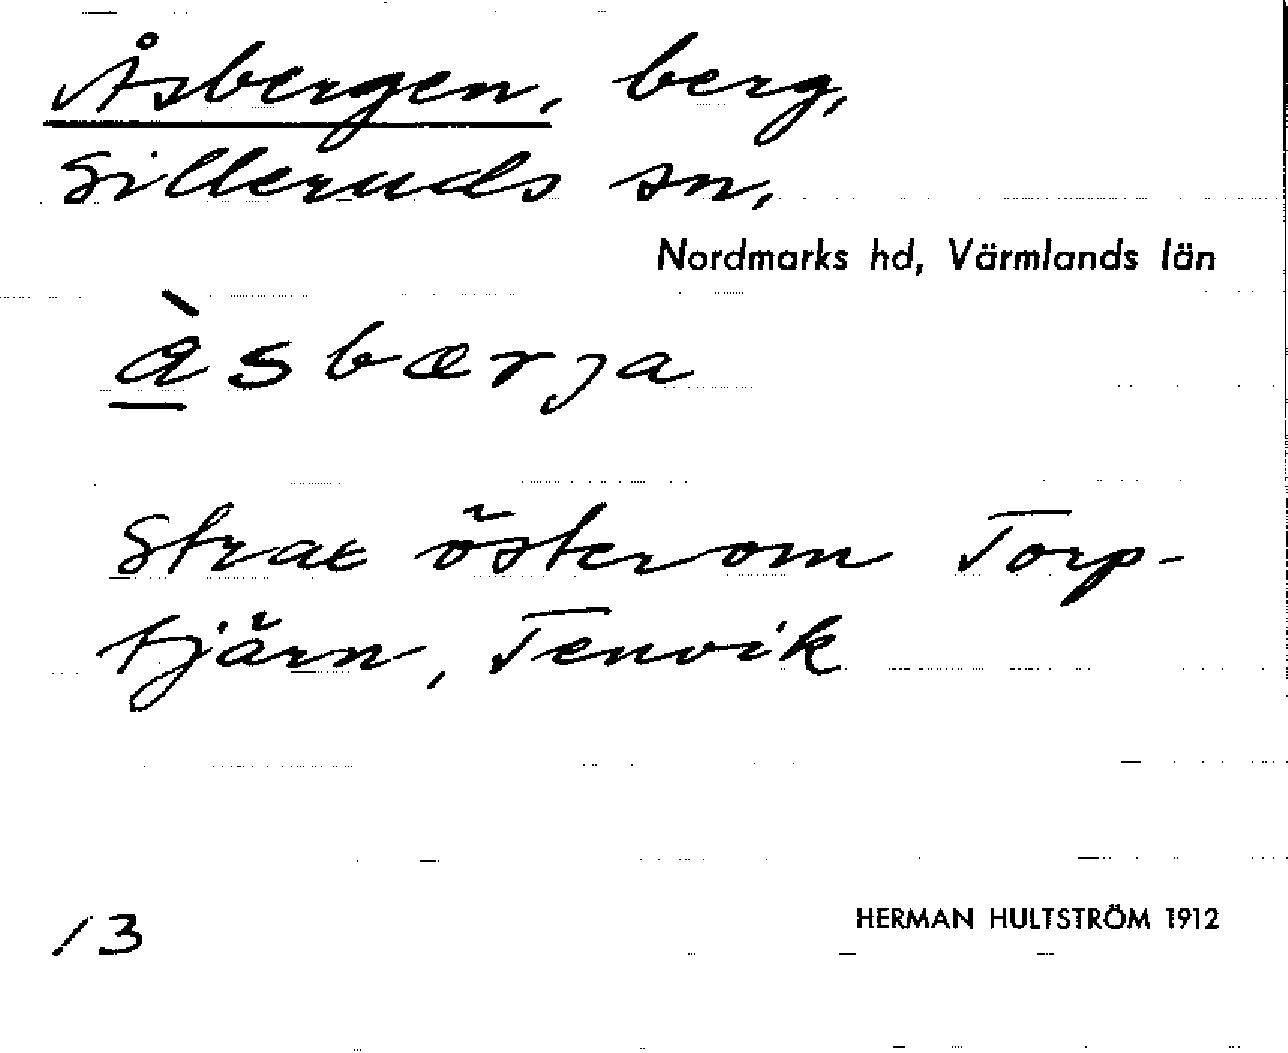 Åsbergen, berg,
Silleruds sn,
Nordmarks hd, Värmlands län
à̲sbærja
Strax österom Torp-
tjärn, Tenvik
13
HERMAN HULTSTRÖM 1912